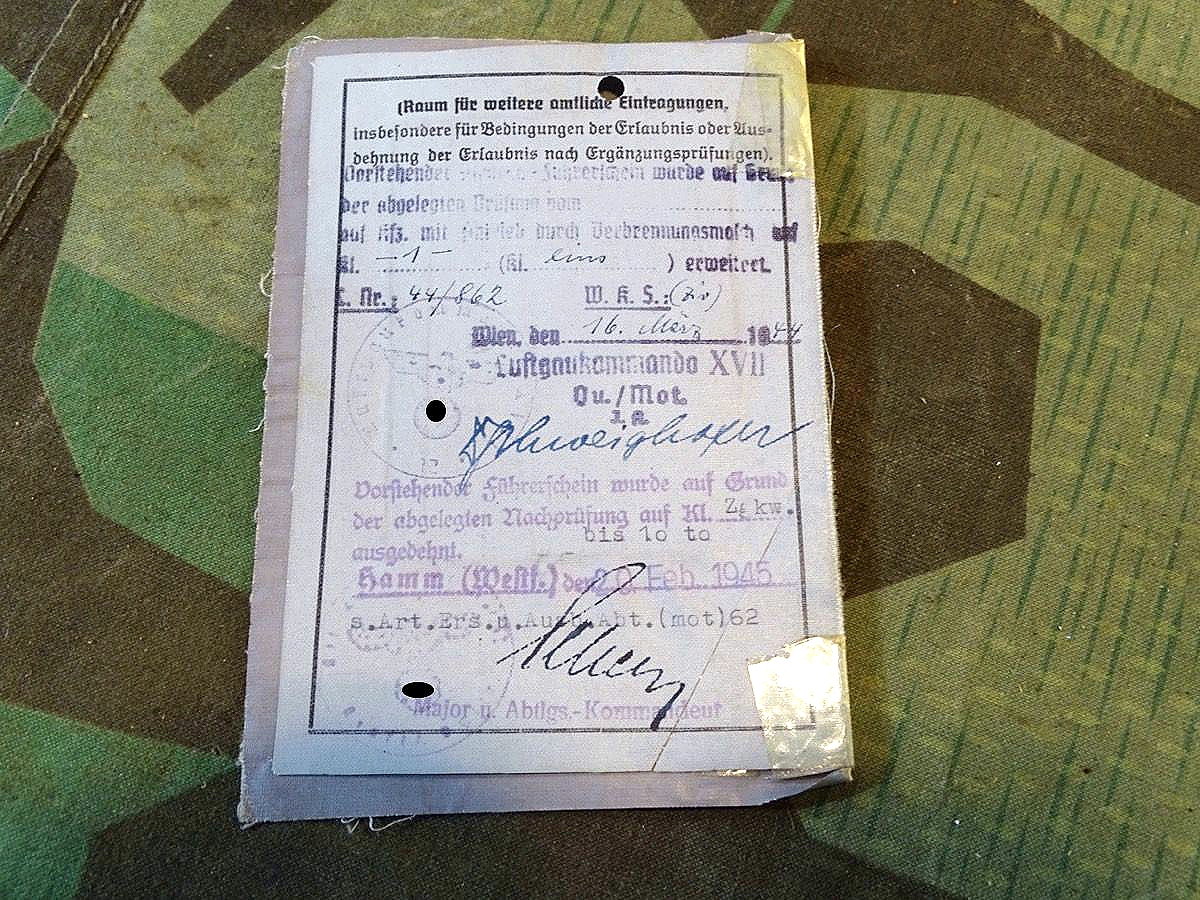 (Raum für weitere amtliche Eintragungen,
insbesondere für Bedingungen der Erlaubnis oder Aus-
dehnung der Erlaubnis nach Ergänzungsprüfungen).
Vorstehender Führerschein wurde auf
der abgelegten Prüfung vom
auf Kfz. mit Antrieb durch Verbrennungsmasch auf
Kl. - 1 - (Kl. eins ) erweitert.
L. Nr.: 44/862 W. K. S.:
Wien, den 16. März 1944
Luftgaukommando XVII
Qu./Mot.
I. A.
Schweighofer
Vorstehender Führerschein wurde auf Grund
der abgelegten Nachprüfung auf Kl. Zgkw.
bis 10 to
ausgedehnt.
Hamm (Westf.) den 20. Feb. 1945
s.Art.Ers.u.Ausb.Abt.(mot)62
Major u. Abtlgs.-Kommandeur